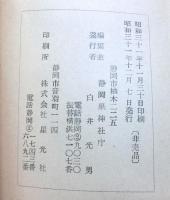 昭和三十一年十一月三十日印刷
昭和三十一年十二月七日発行
〔非売品〕
静岡市柚木二二五
編集兼
発行者
静岡県神社庁
白井光男
電話静岡②九〇三〇
振替横浜七一〇七番
静岡市音羽町一一四
印刷所
株式会社 星光社
電話静岡②一七四三番
六八九二番